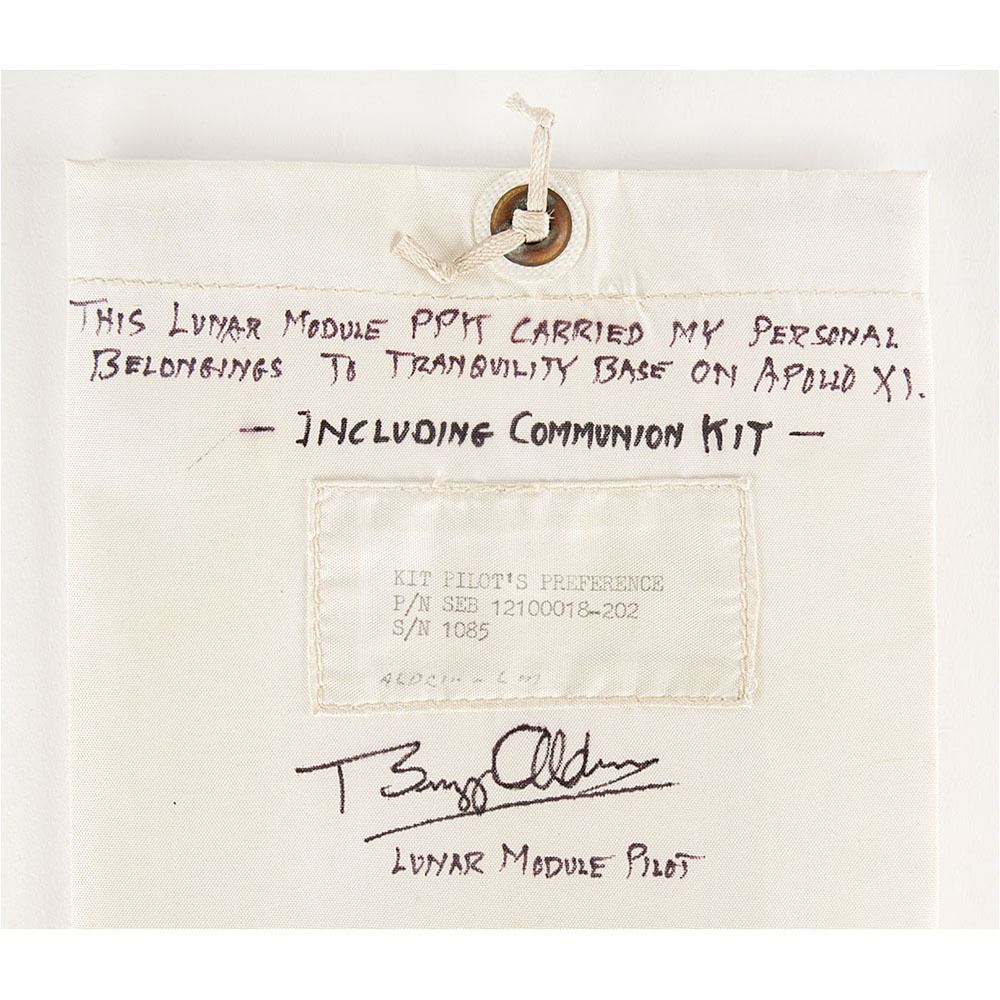 THIS LUNAR MODULE PPK CARRIED MY PERSONAL
BELONGINGS TO TRANQUILITY BASE ON APOLLO XI.
— INCLUDING COMMUNION KIT —
KIT PILOT'S PREFERENCE
P/N SEB 12100018-202
S/N 1085
ALDRIN - LM
Buzz Aldrin
LUNAR MODULE PILOT